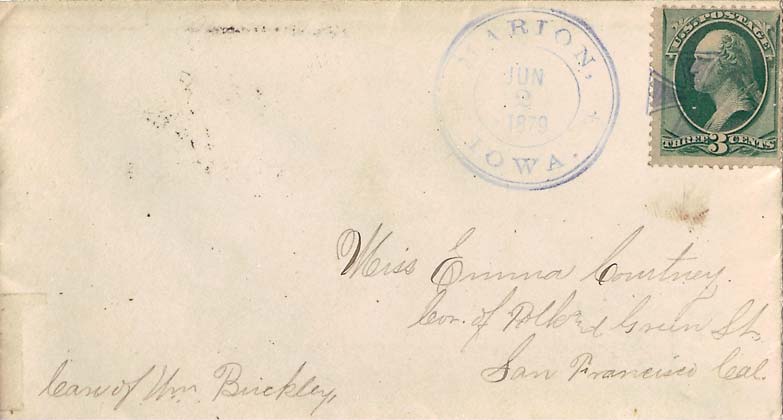 MARION,
JUN
2
1879
IOWA.
U.S. POSTAGE
THREE 3 CENTS
Miss Emma Courtney
Cor. of Polk & Green St.
San Francisco Cal.
Care of Wm. Buckley,